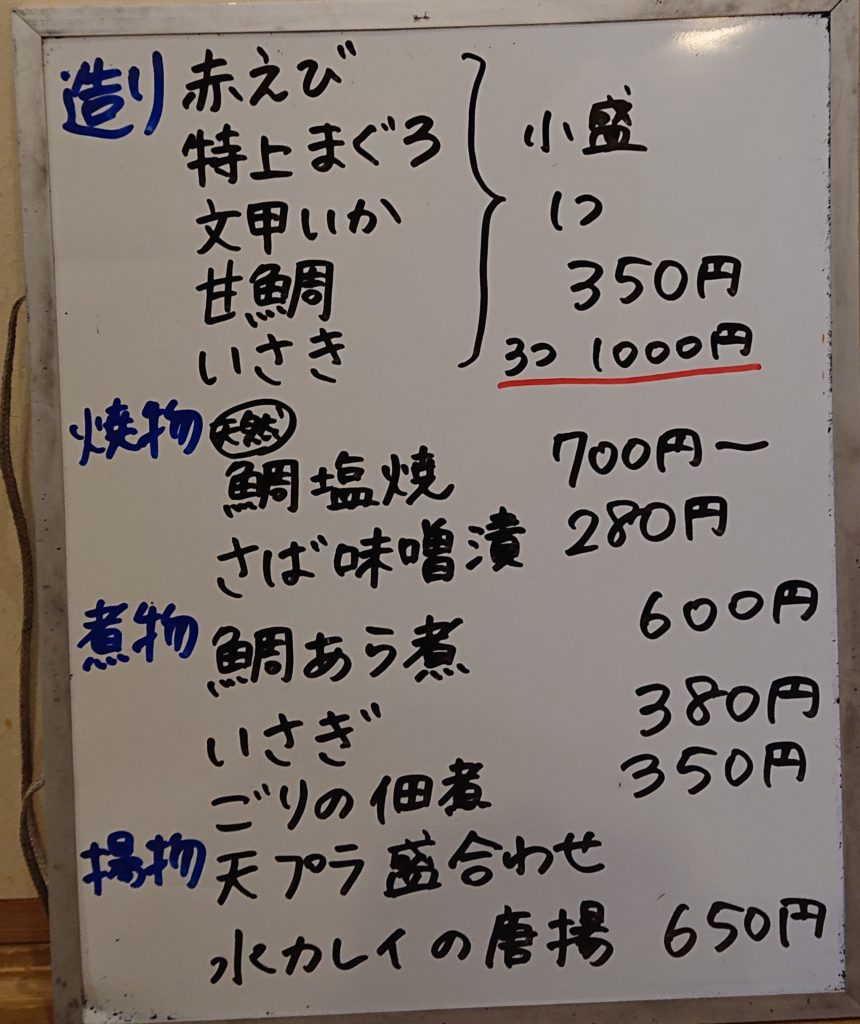 造り 赤えび
特上まぐろ 小盛
文甲いか 1つ
甘鯛 350円
いさき 3つ 1000円
焼物 天然
鯛塩焼 700円～
さば味噌漬 280円
煮物 鯛あら煮 600円
いさぎ 380円
ごりの佃煮 350円
揚物 天プラ盛合わせ
水カレイの唐揚 650円